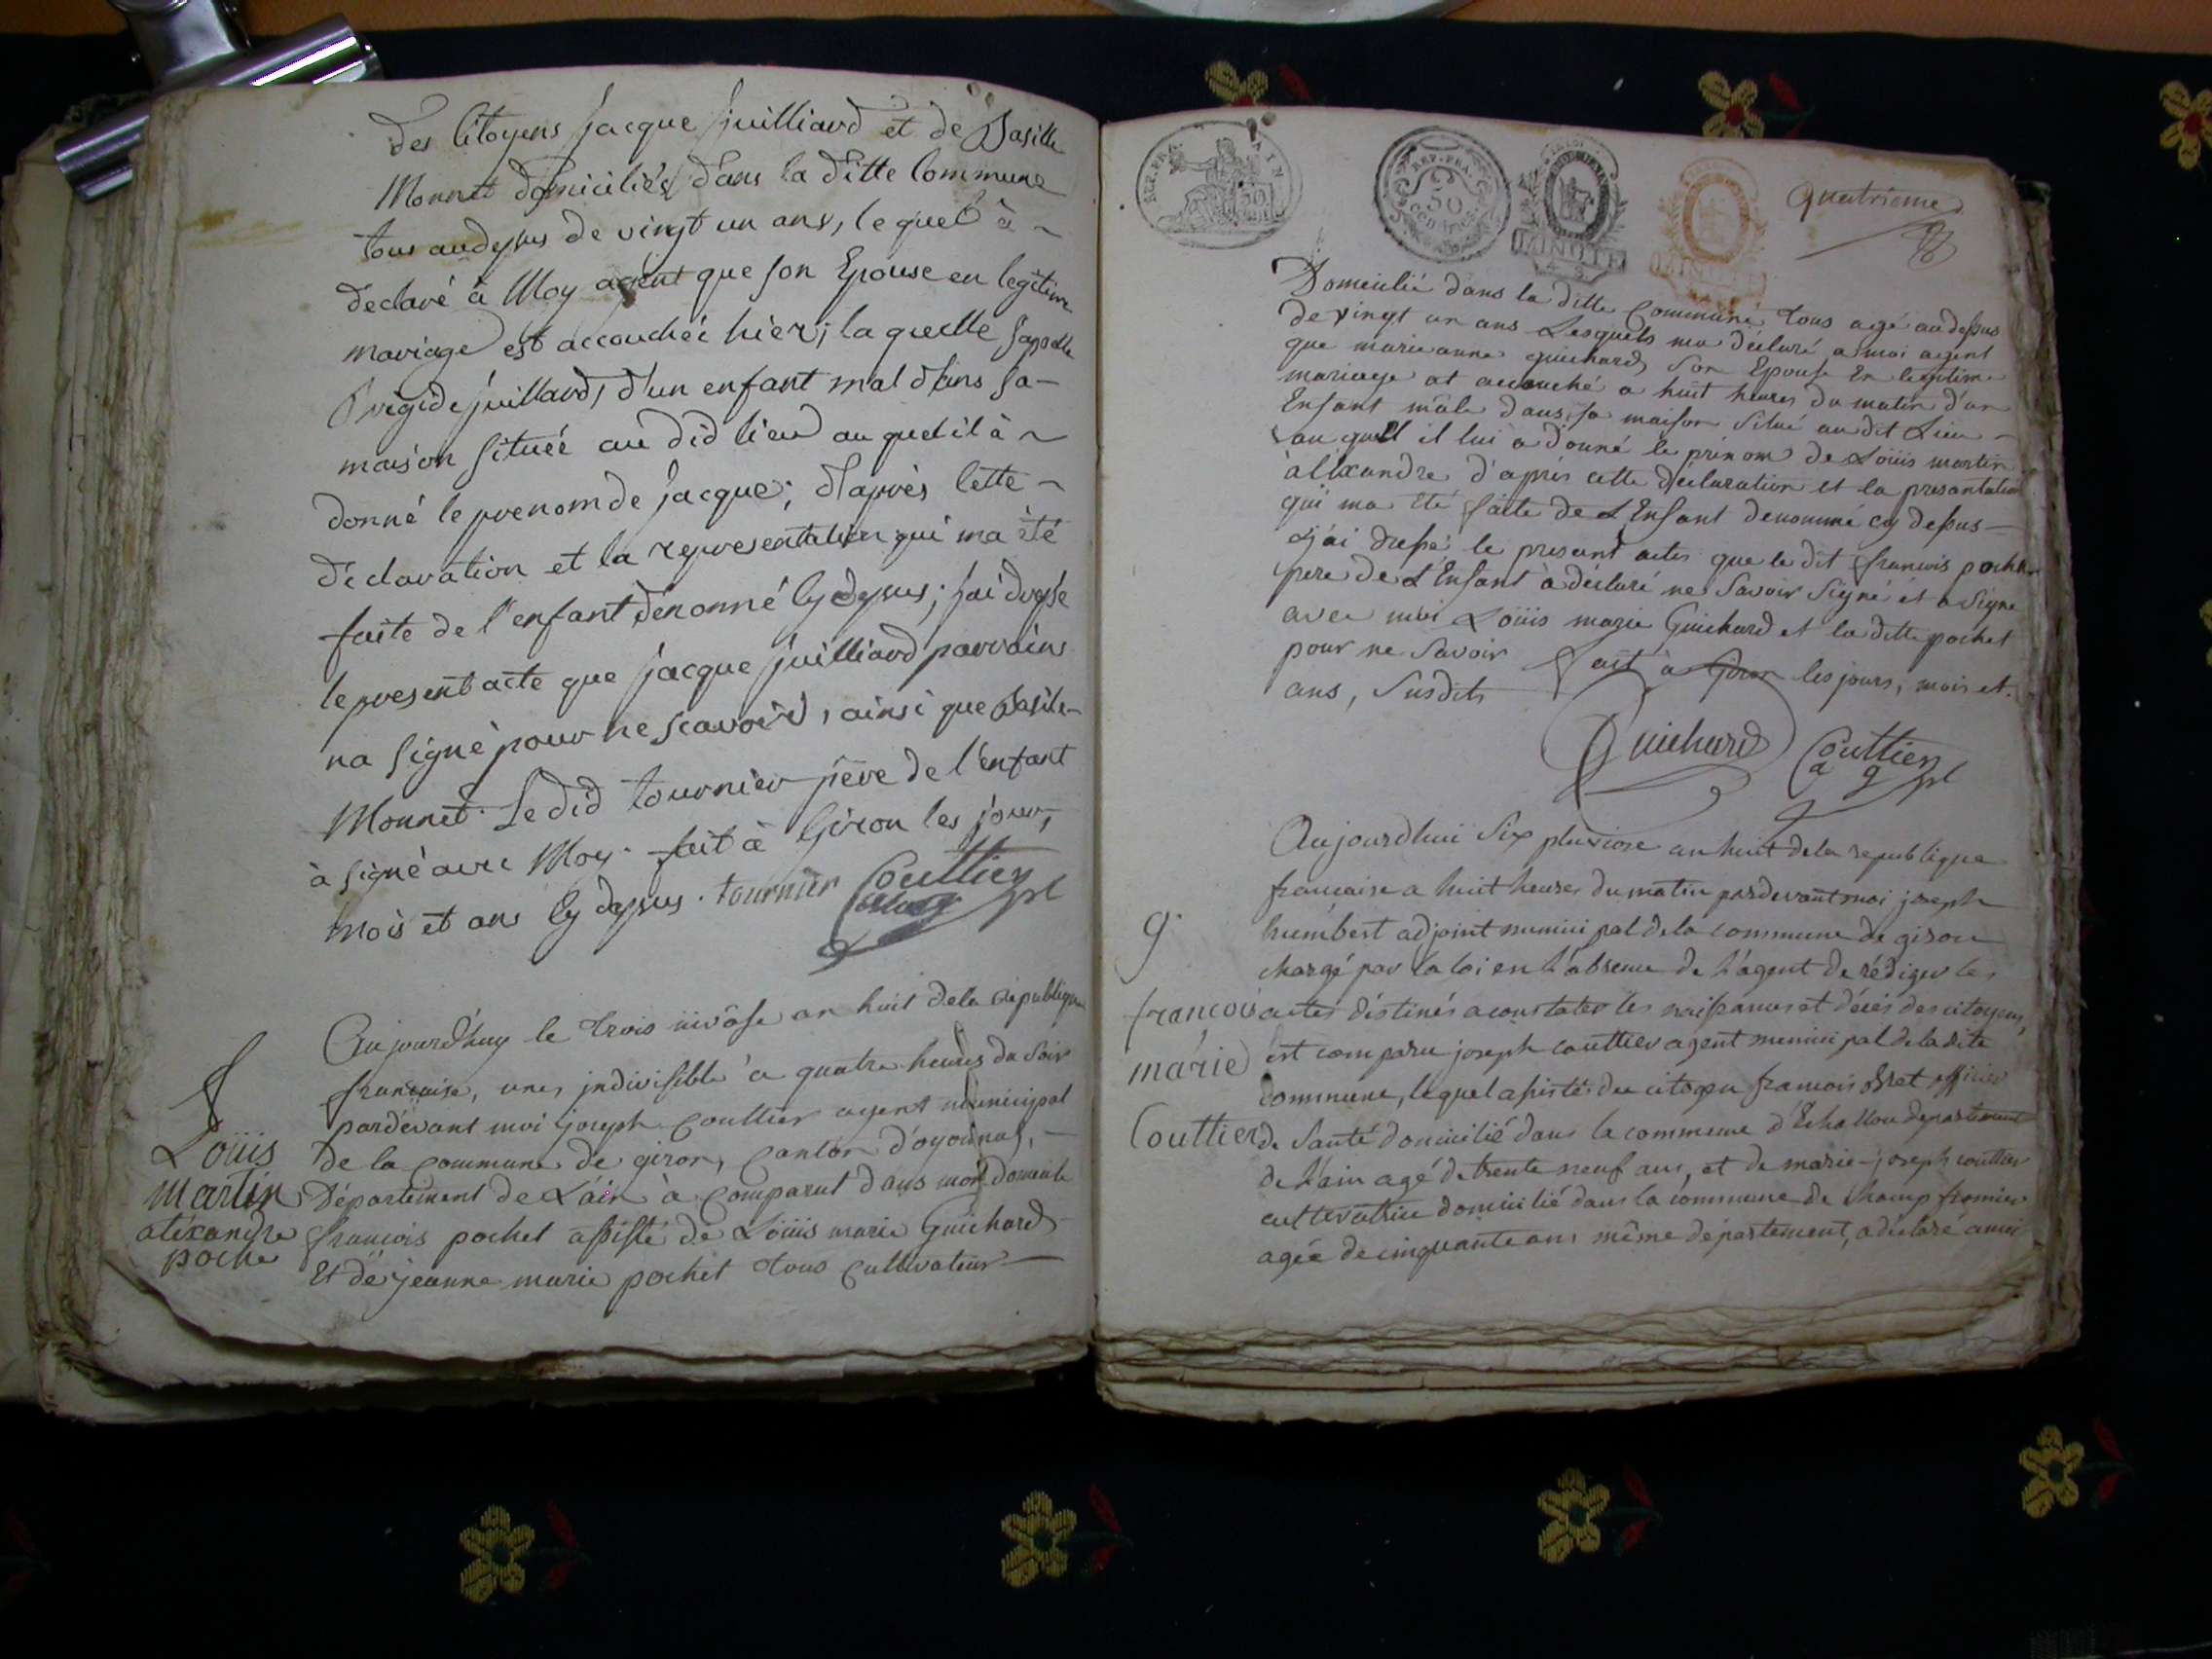 des Citoyens Jacque Juilliard et de Basille
Monnet domiciliés dans la ditte Commune
tous audessus de vingt un ans, le quel à
declaré à Moy agent que son Epouse en legitime
mariage est accouchée hier; la quelle sapelle
Brigide juillard, d'un enfant mal dans sa
maison située au did lieu au quel il à
donné le prenom de Jacque; d'après cette
déclaration et la representation qui ma été
faite de l'enfant dénonmé Cy dessus; jai dressé
le present acte que Jacque Juilliard parrains
na signé pour ne scavoire, ainsi que Basile
Monnet. Le did tournier père de l'enfant
à signé avec Moy. fait à Giron les jour,
mois et ans Cy dessus. tournier Couttier
agt
8
Loüis
Martin
aléxandre
poche
Aujourd'huy le trois nivôse an huit dela République
française, une, indivisible à quatre heures du soir
pardevant moi joseph Couttier agent municipal
de la Commune de giron, Canton d'oyonnas,
Département de L'ain à Comparut dans mon domicile
francois pochet assisté de Loüis marie Guichard
Et de jeanne marie pochet tous Cultivateur
REP. FRA. AIN
50
REP. FRA.
50
CENTIMES
MINUTE
MINUTE
quatrieme
Domicilié dans la ditte Commune tous agé audessus
de vingt un ans Lesquels ma déclaré a moi agent
que marieanne guichard, son Epouse En legitime
mariage at accouché a huit heures du matin d'un
Enfant mâle dans sa maison situé au dit Lieu
au quel il lui a donné le prénom de Loüis martin
àléxandre d'après cette déclaration et la presantation
qui ma Eté faite de L'Enfant denommé cy dessus
j'ai dressé le presant actes que le dit francois pochet
pere de L'Enfant à déclaré ne savoir signé et a signé
avec moi Loüis marie Guichard et la ditte pochet
pour ne savoir fait à Giron les jours, mois et
ans, susdits
Guichard Couttier
agt
9.
francois
marie
Couttier
Aujourdhui six pluviose an huit dela republique
francaise a huit heures du matin pardevant moi joseph
humbert adjoint municipal dela commune de giron
chargé par la loi en l'absence de l'agent de rédiger les
actes destinés a constater les naissances et décès des citoyens,
est comparu joseph couttier agent municipal dela dite
commune, lequel assisté du citoyen francois officier
de santé domicilié dans la commune d'Echallon departement
de l'ain agé de trente neuf ans, et de marie-joseph couttier
cultivatrice domicilié dans la commune de champfromier
agée de cinquante ans même département, a déclaré a moi